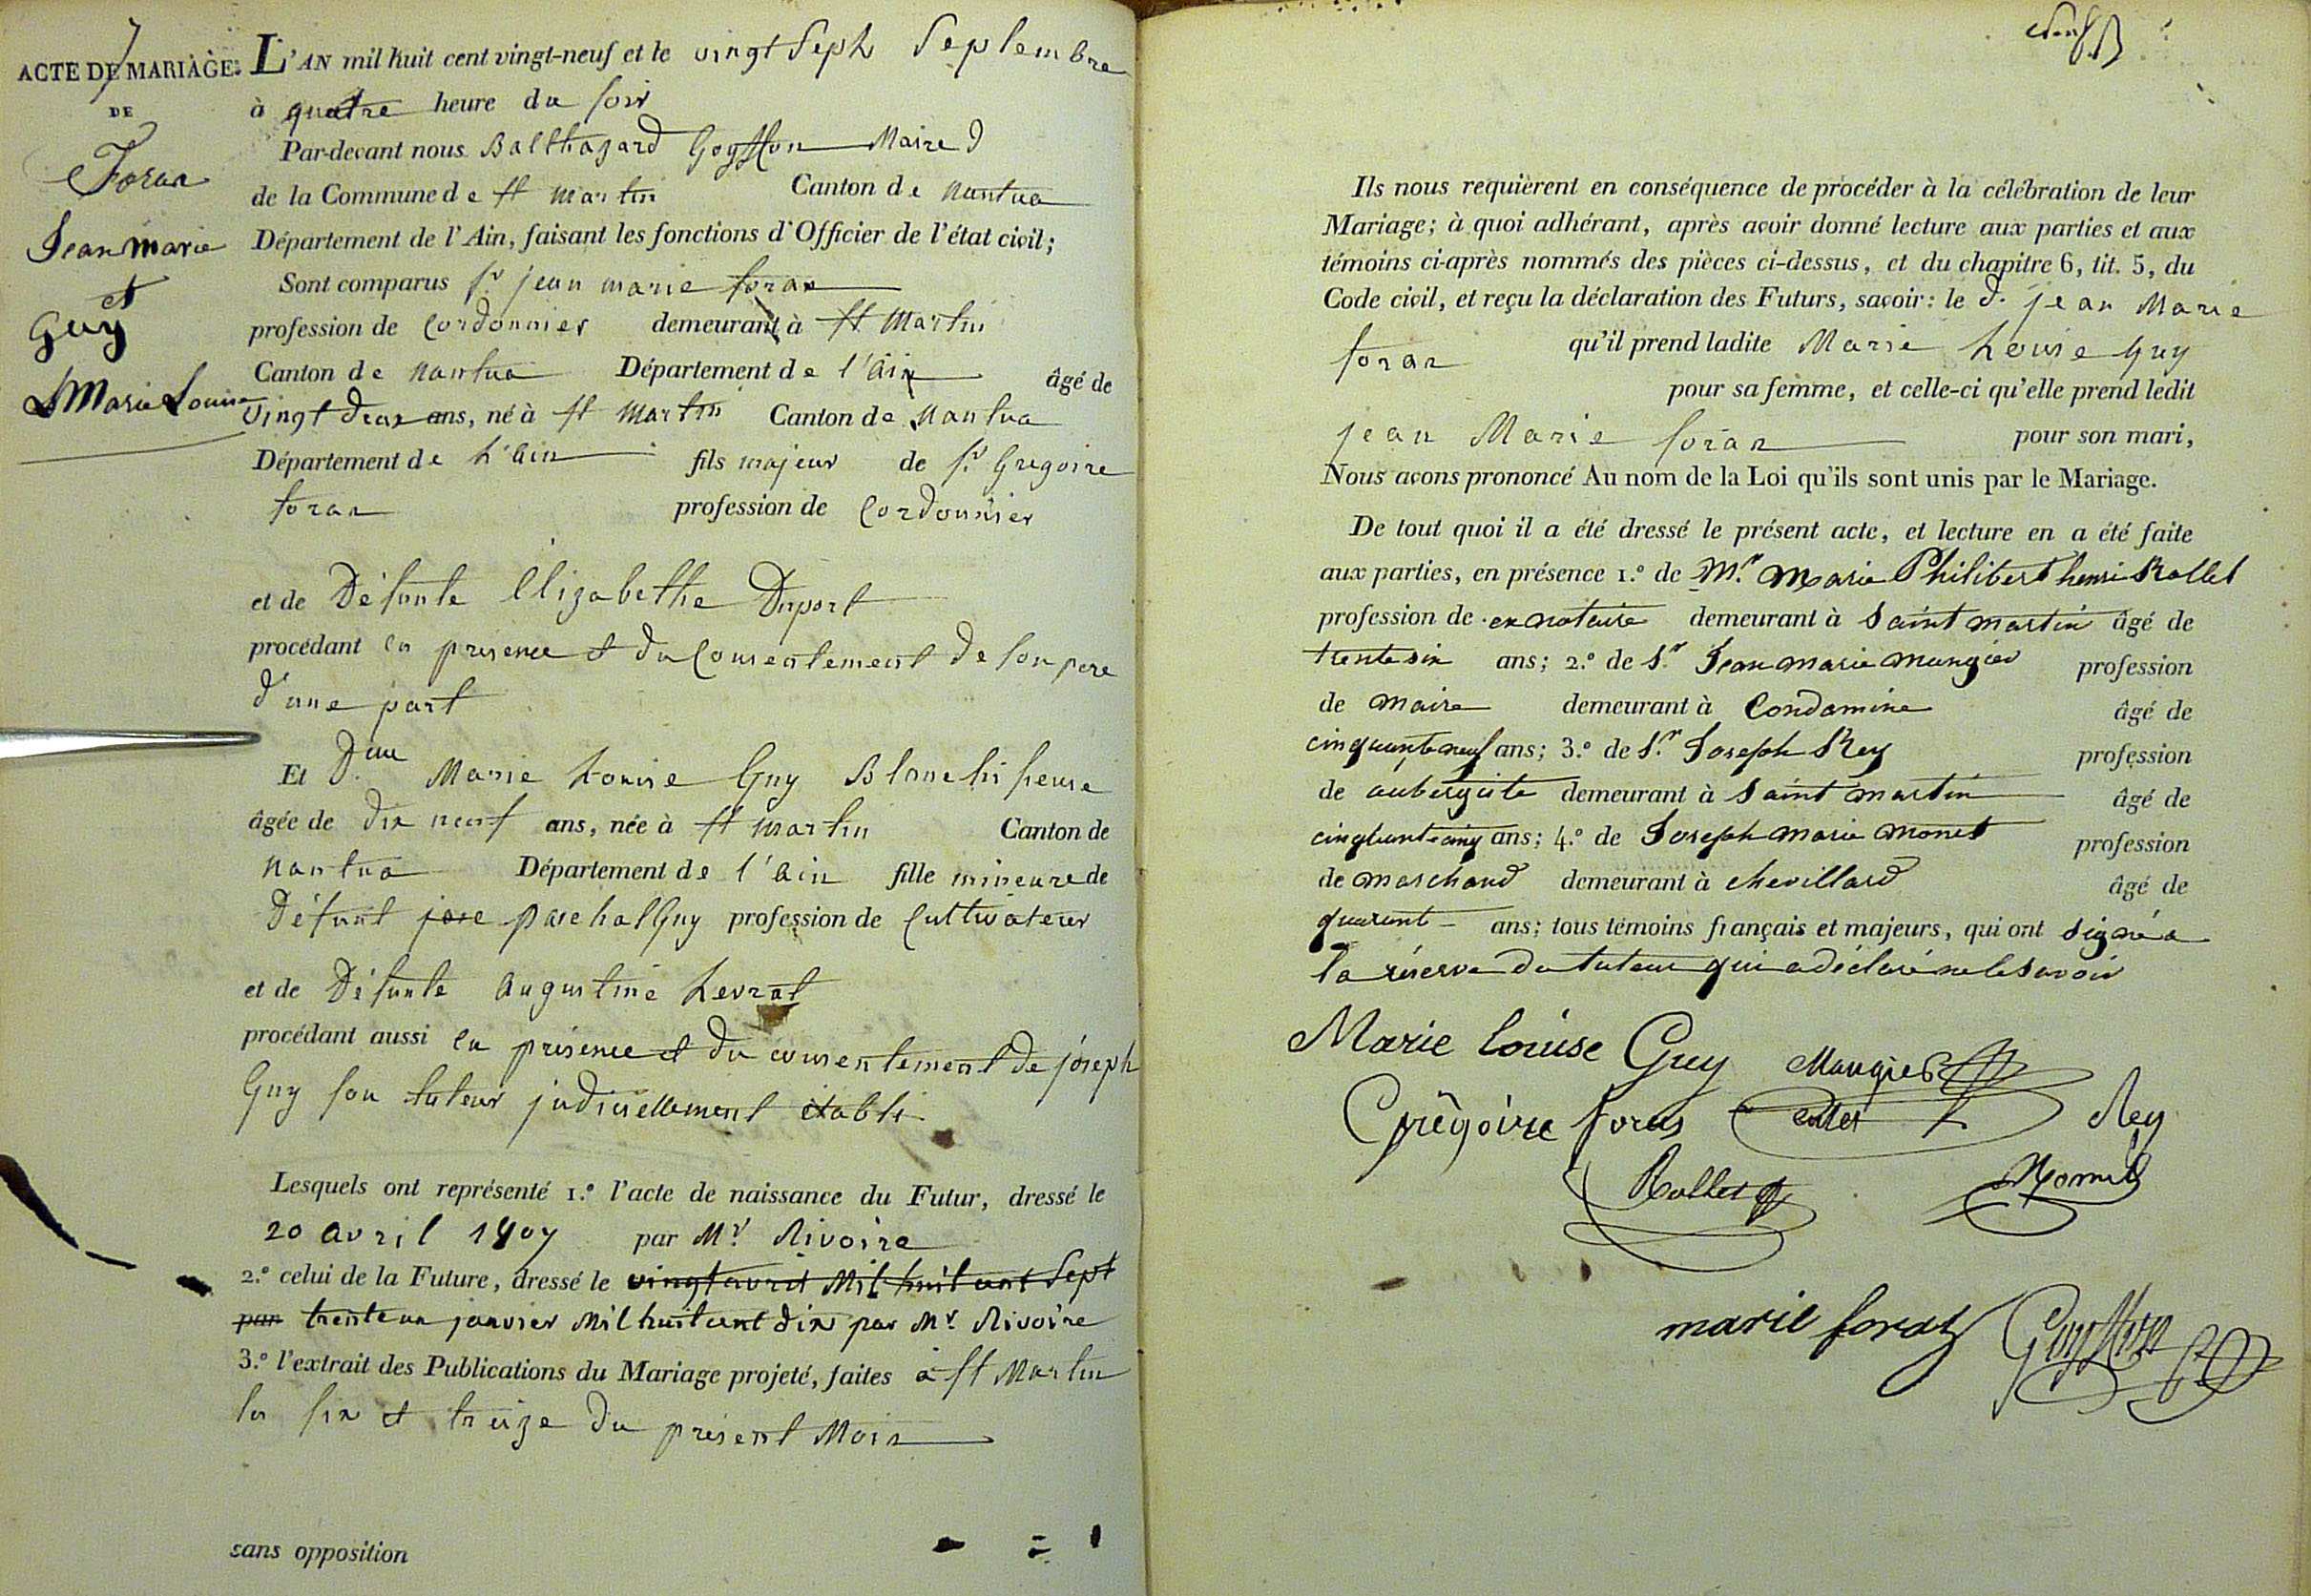 7
ACTE DE MARIAGE.
DE
Foras
Jean Marie
et
Guy
Marie Louise
L'AN mil huit cent vingt-neuf et le vingt Sept Septembre
à quatre heure du soir
Par-devant nous Balthazard Goyffon Maire
de la Commune de St Martin Canton de Nantua
Département de l'Ain, faisant les fonctions d'Officier de l'état civil;
Sont comparus Sr jean marie foras
profession de Cordonnier demeurant à St Martin
Canton de Nantua Département de l'Ain âgé de
vingt deux ans, né à St Martin Canton de Nantua
Département de L'Ain fils majeur de Sr Gregoire
foras profession de Cordonnier
et de Défunte Elizabethe Duport
procédant en presence et du Consentement de son pere
d'une part
Et Dlle Marie Louise Guy
âgée de dix neuf ans, née à St Martin Canton de
Nantua Département de l'Ain fille mineure de
Défunt jose paschal Guy profession de Cultivateur
et de Défunte Augustine Levrat
procédant aussi en présence et du consentement de joseph
Guy son tuteur judiciellement établi
Lesquels ont représenté 1.º l'acte de naissance du Futur, dressé le
20 avril 1807 par Mr Rivoire
2.º celui de la Future, dressé le vingt avril Mil huit cent Sept
par trente un janvier Mil huit cent dix par Mr Rivoire
3.º l'extrait des Publications du Mariage projeté, faites à St Martin
les six et treize du présent Mois
sans opposition
Ils nous requièrent en conséquence de procéder à la célébration de leur
Mariage; à quoi adhérant, après avoir donné lecture aux parties et aux
témoins ci-après nommés des pièces ci-dessus, et du chapitre 6, tit. 5, du
Code civil, et reçu la déclaration des Futurs, savoir: le d. jean Marie
foras qu'il prend ladite Marie Louise Guy
pour sa femme, et celle-ci qu'elle prend ledit
jean Marie foras pour son mari,
Nous avons prononcé Au nom de la Loi qu'ils sont unis par le Mariage.
De tout quoi il a été dressé le présent acte, et lecture en a été faite
aux parties, en présence 1.º de Mr. Marie Philibert henri Rollet
profession de ex notaire demeurant à Saint martin âgé de
trente six ans; 2.º de Sr. Jean marie maugier profession
de maire demeurant à Condamine âgé de
cinquante neuf ans; 3.º de Sr. Joseph Rey profession
de aubergiste demeurant à Saint martin âgé de
cinquante cinq ans; 4.º de Joseph marie monet profession
de marchand demeurant à chevillard âgé de
quarante ans; tous témoins français et majeurs, qui ont signé a
la réserve du tuteur qui a déclaré ne le savoir
Marie louise Guy Maugier
Grêgoire foras Rey
Rollet Monet
marie foraz Goyffon